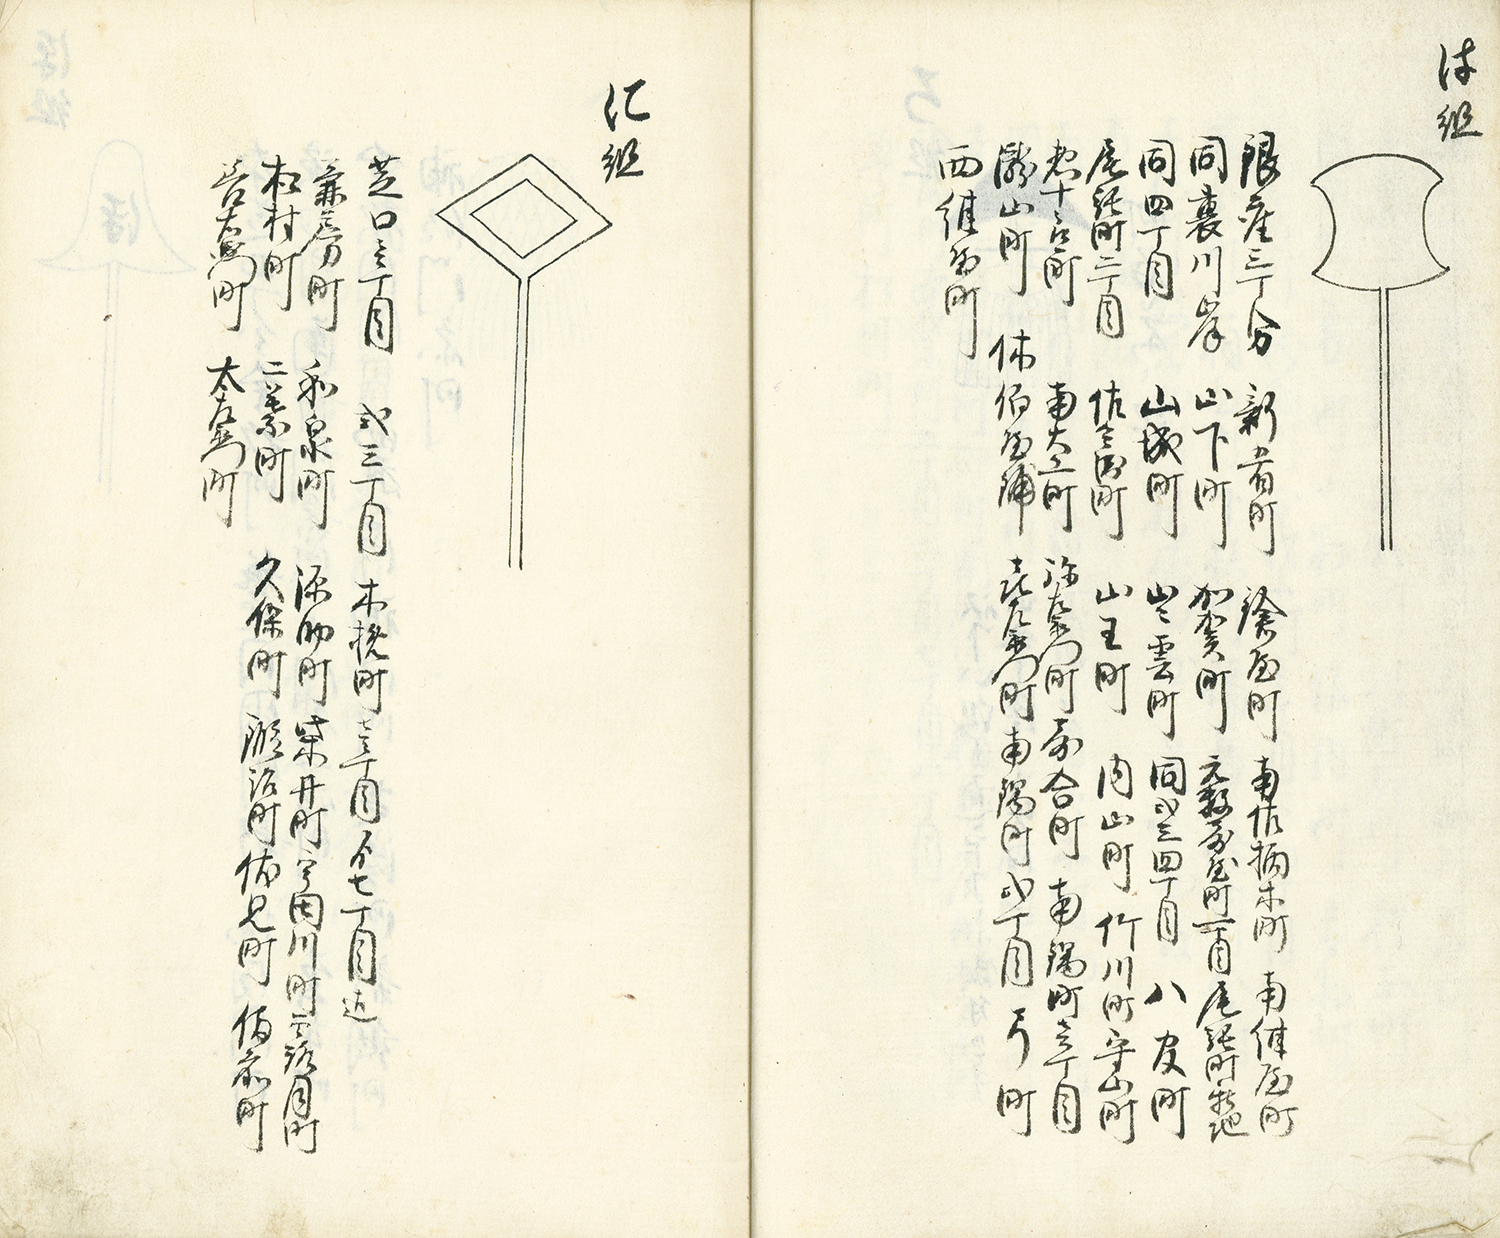 は組
銀座三丁分 新肴町 鎗屋町 南佐柄木町 南鍛屋町
同裏川岸 山下町 加賀町 元数寄屋町一丁目 尾張町
同四丁目 山城町 出雲町 同弐三四丁目 八官町
尾張町二丁目 山王町 内山町 竹川町 守山町
惣十郎町 南大工町 弥左衛門町 寄合町 南鍋町壱丁目
瀧山町 休伯屋鋪 喜左衛門町 南鍋町弐丁目 弓町
西紺屋町
に組
芝口壱丁目 弐三丁目 木挽町 壱丁目 七丁目迄
兼房町 和泉町 源助町 柴井町 宇田川町 露月町
松村町 二葉町 久保町 鍛冶町 伏見町 備前町
善右衛門町 太左衛門町